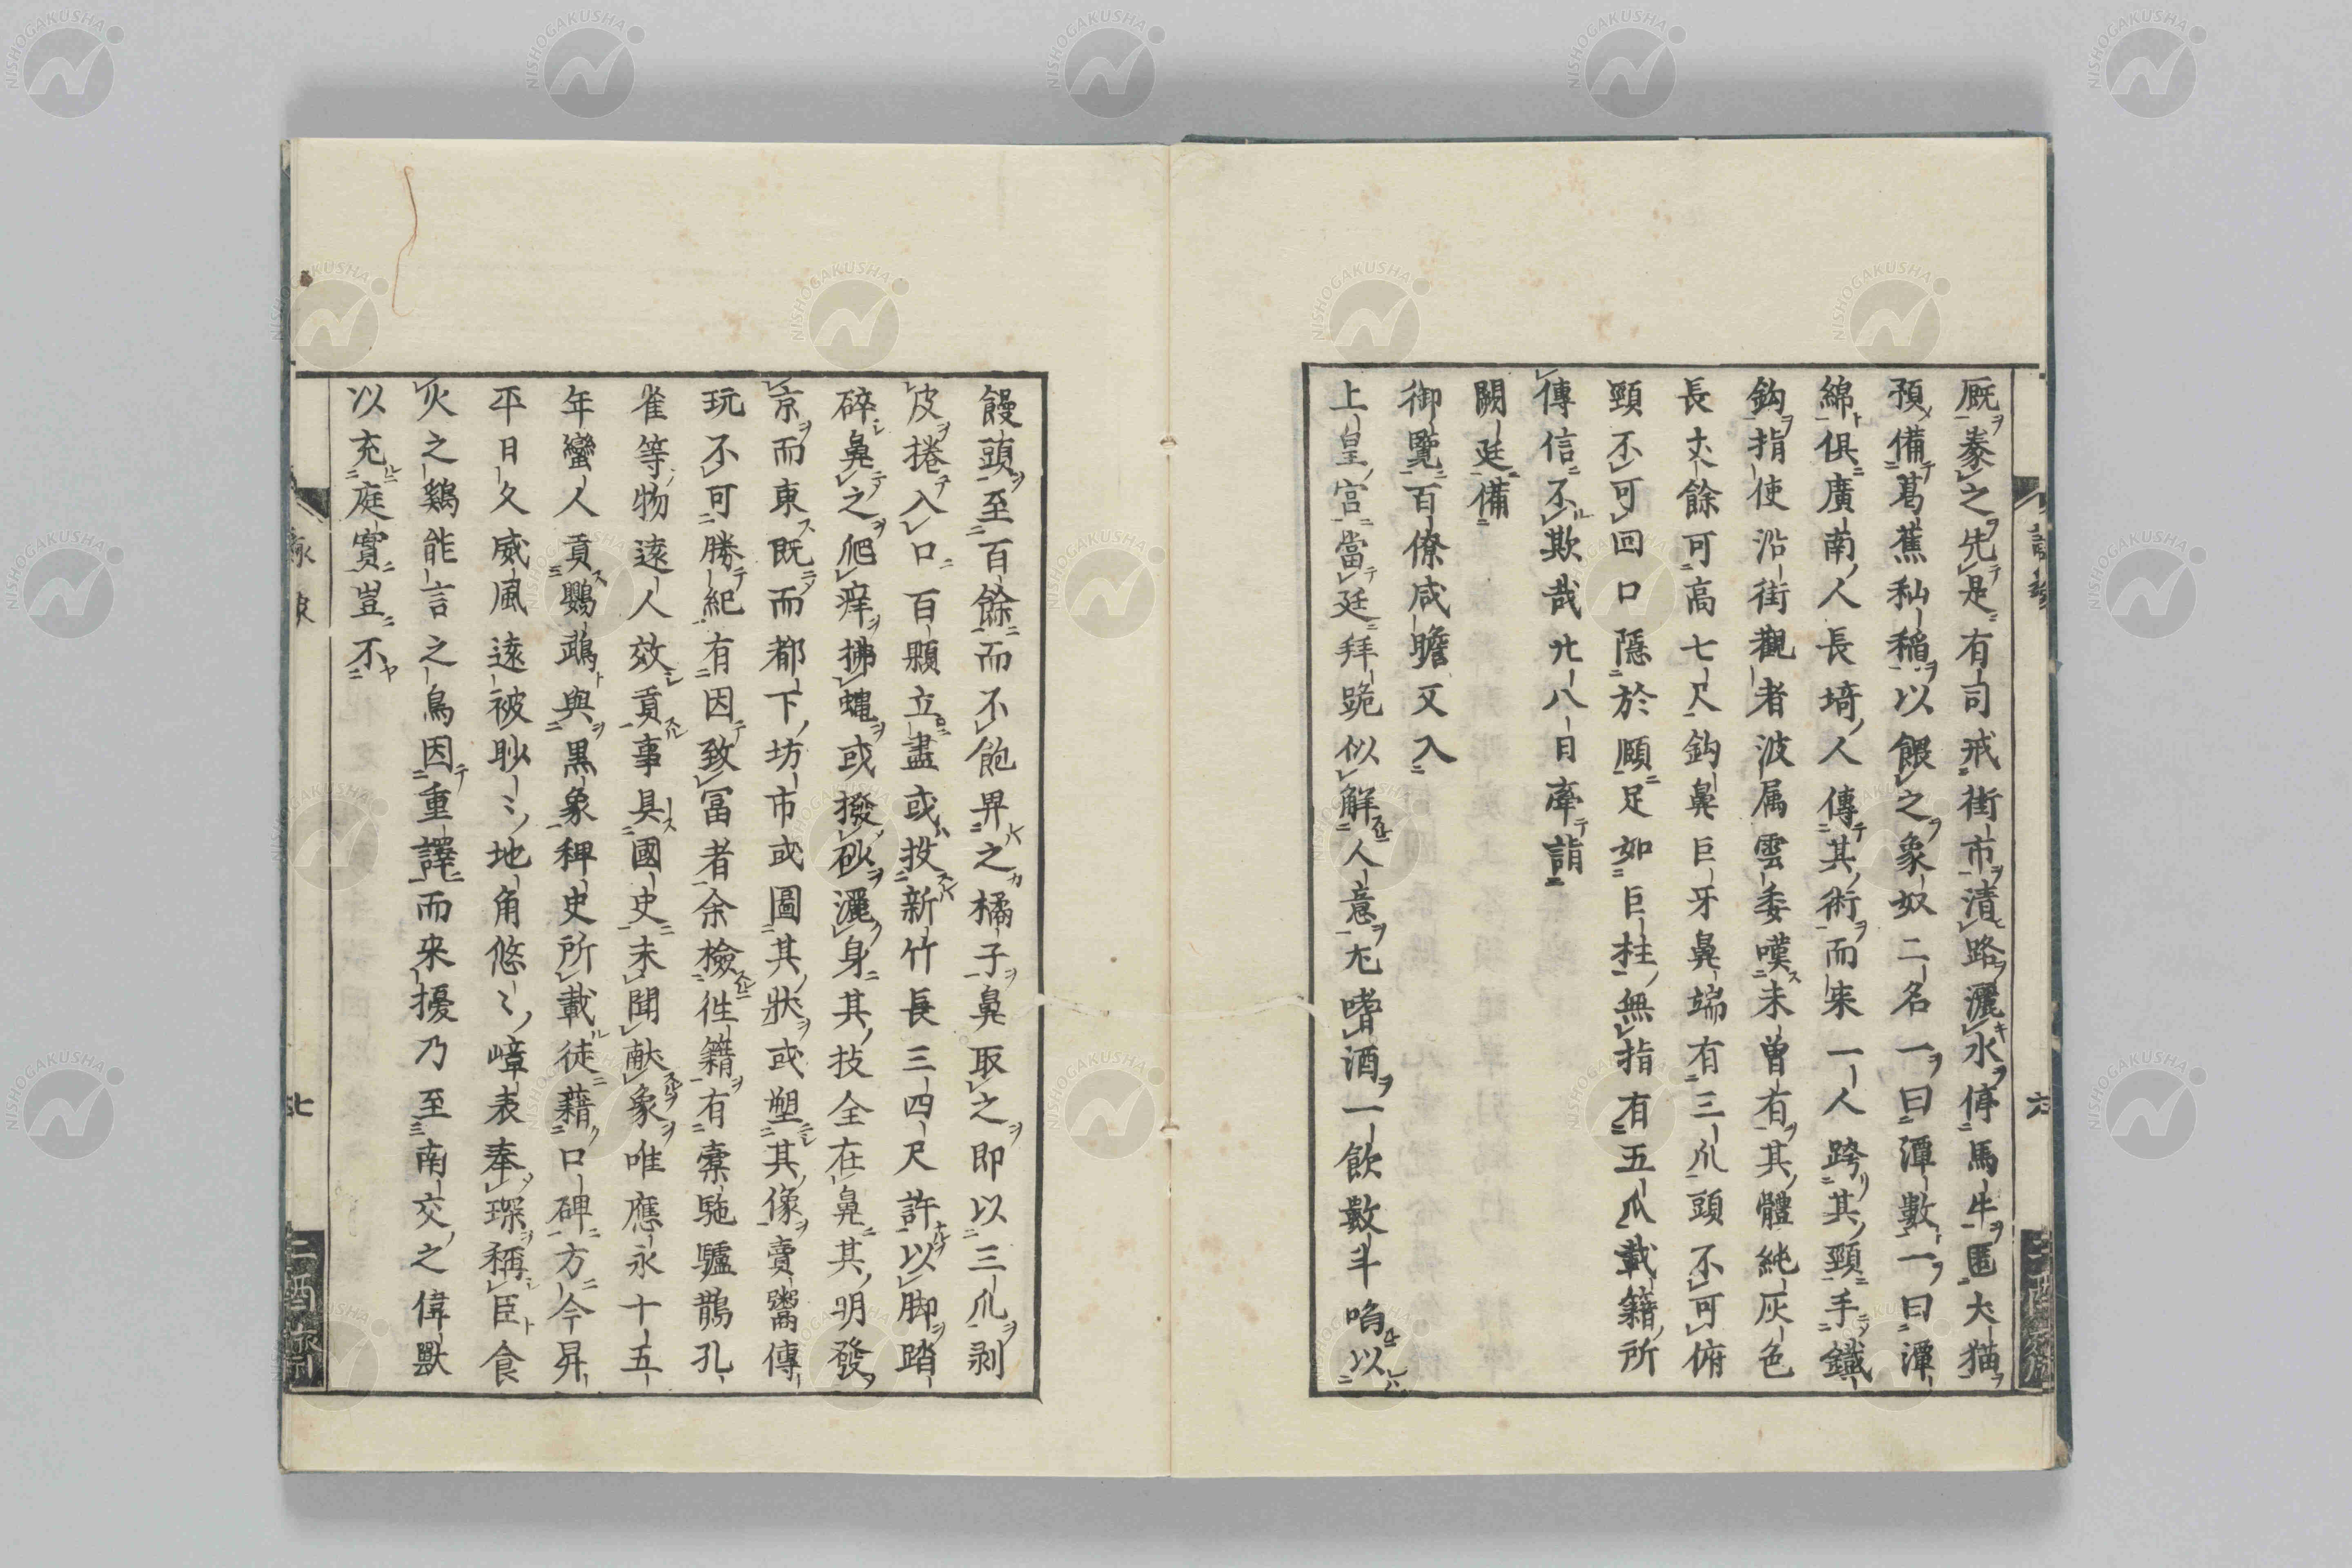 厩豢之先是有司戒街市清路灑水停馬牛匿犬猫
預備葛蕉秈稲以餵之象奴二名一曰潭數一曰潭
綿倶廣南人長埼人傳其術而来一人跨其頸手鐵
鈎指使沿街觀者波属雲委嘆未曽有其體純灰色
長丈餘可高七尺鈎鼻巨牙鼻端有三爪頭不可俯
頸不可回口隠於頤足如巨柱無指有五爪載籍所
傳信不欺哉廿八日牽詣
闕廷備
御覽百僚咸瞻又入
上皇宮當廷拜跪似解人意尤嗜酒一飲數斗啗以
饅頭至百餘而不飽畀之橘子鼻取之即以三爪剥
皮捲入口百顆立盡或投新竹長三四尺許以脚踏
碎鼻之爬痒拂蠅或撥砂灑身其技全在鼻其明發
京而東既而都下坊市或圖其状或塑其像賣鬻傳
玩不可勝紀有因致冨者余檢往籍有槖駞驢鵲孔
雀等物遠人效貢事具國史未聞献象唯應永十五
年蠻人貢鸚鵡與黒象稗史所載徒藉口碑方今昇
平日久威風遠被眇〻地角悠〻嶂表奉琛稱臣食
火之鷄能言之鳥因重譯而来擾乃至南交之偉獸
以充庭實豈不